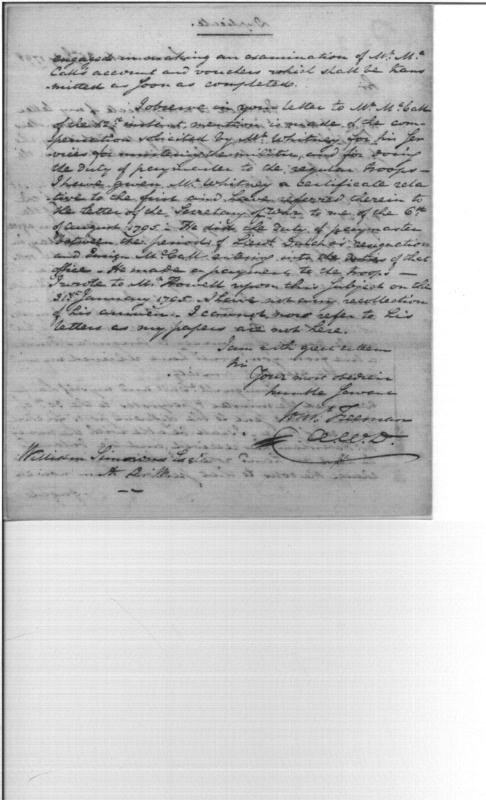 Duplicate.
engaged in making an examination of Mr. Mc.
Call's account and vouchers which shall be trans
mitted as soon as completed.
I observe in your letter to Mr. McCall
of the 12th instant, mention is made of the com-
pensation solicited by Mr. Whitney for his ser
vices for mustering the militia, and for doing
the duty of paymaster to the regular troops —
I have given Mr. Whitney a certificate rela
tive to the first and have referred therein to
the letter of the Secretary of War to me of the 6th
of August 1795. He did the duty of paymaster
between the periods of Lieut. resignation
and Ensign McCall entering into the duties of that
office. He made no payment to the troops —
I wrote to Mr. Howell upon this subject on the
31st January 1795. I have not any recollection
of his answer. I cannot now refer to his
letters as my papers are not here.
I am with great esteem
Sir
Your most obedient
humble Servant
Freeman
William Simmons Esqr.